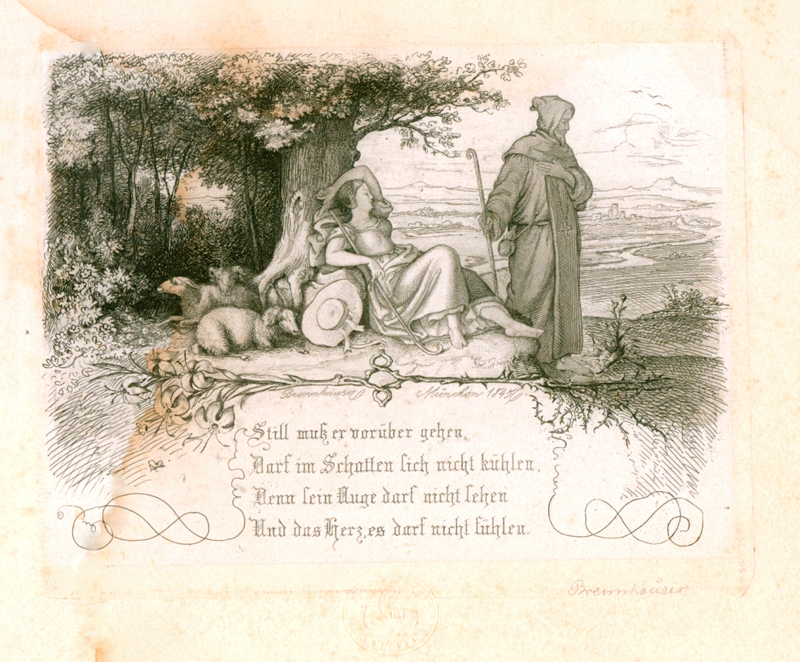 Brennhäuser München
Still muß er vorüber gehen,
Darf im Schatten sich nicht kühlen,
Denn sein Auge darf nicht sehen
Und das Herz, es darf nicht fühlen.
Brennhäuser